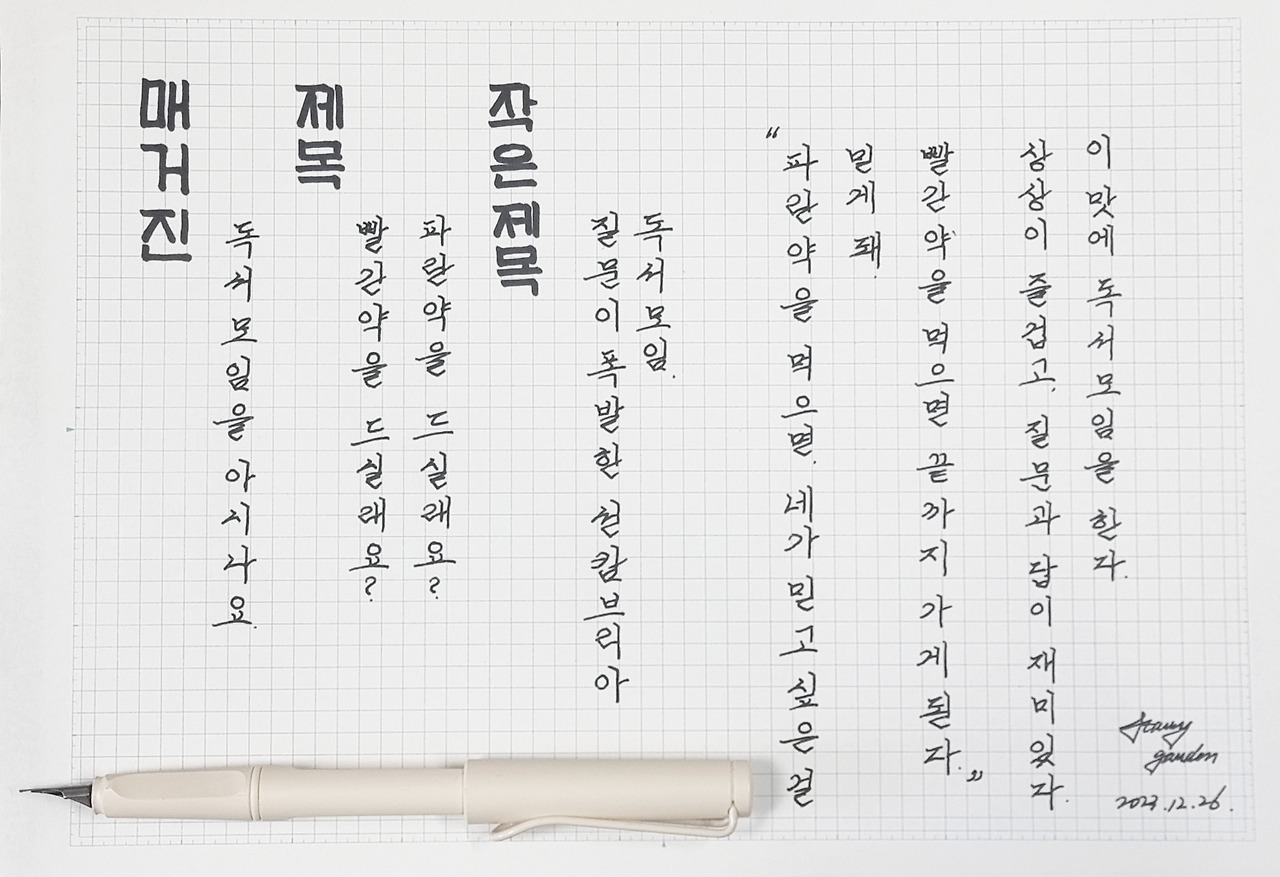 매거진
독서모임을 아시나요.
제목
빨간약을 드실래요?
파란약을 드실래요?
작은제목
질문이 폭발한 선캄브리아
독서모임.
"파란약을 먹으면. 네가 믿고 싶은 걸
믿게 돼.
빨간약을 먹으면 끝까지 가게 된다."
상상이 즐겁고. 질문과 답이 재미있다.
이 맛에 독서모임을 한다.
2023.12.26.